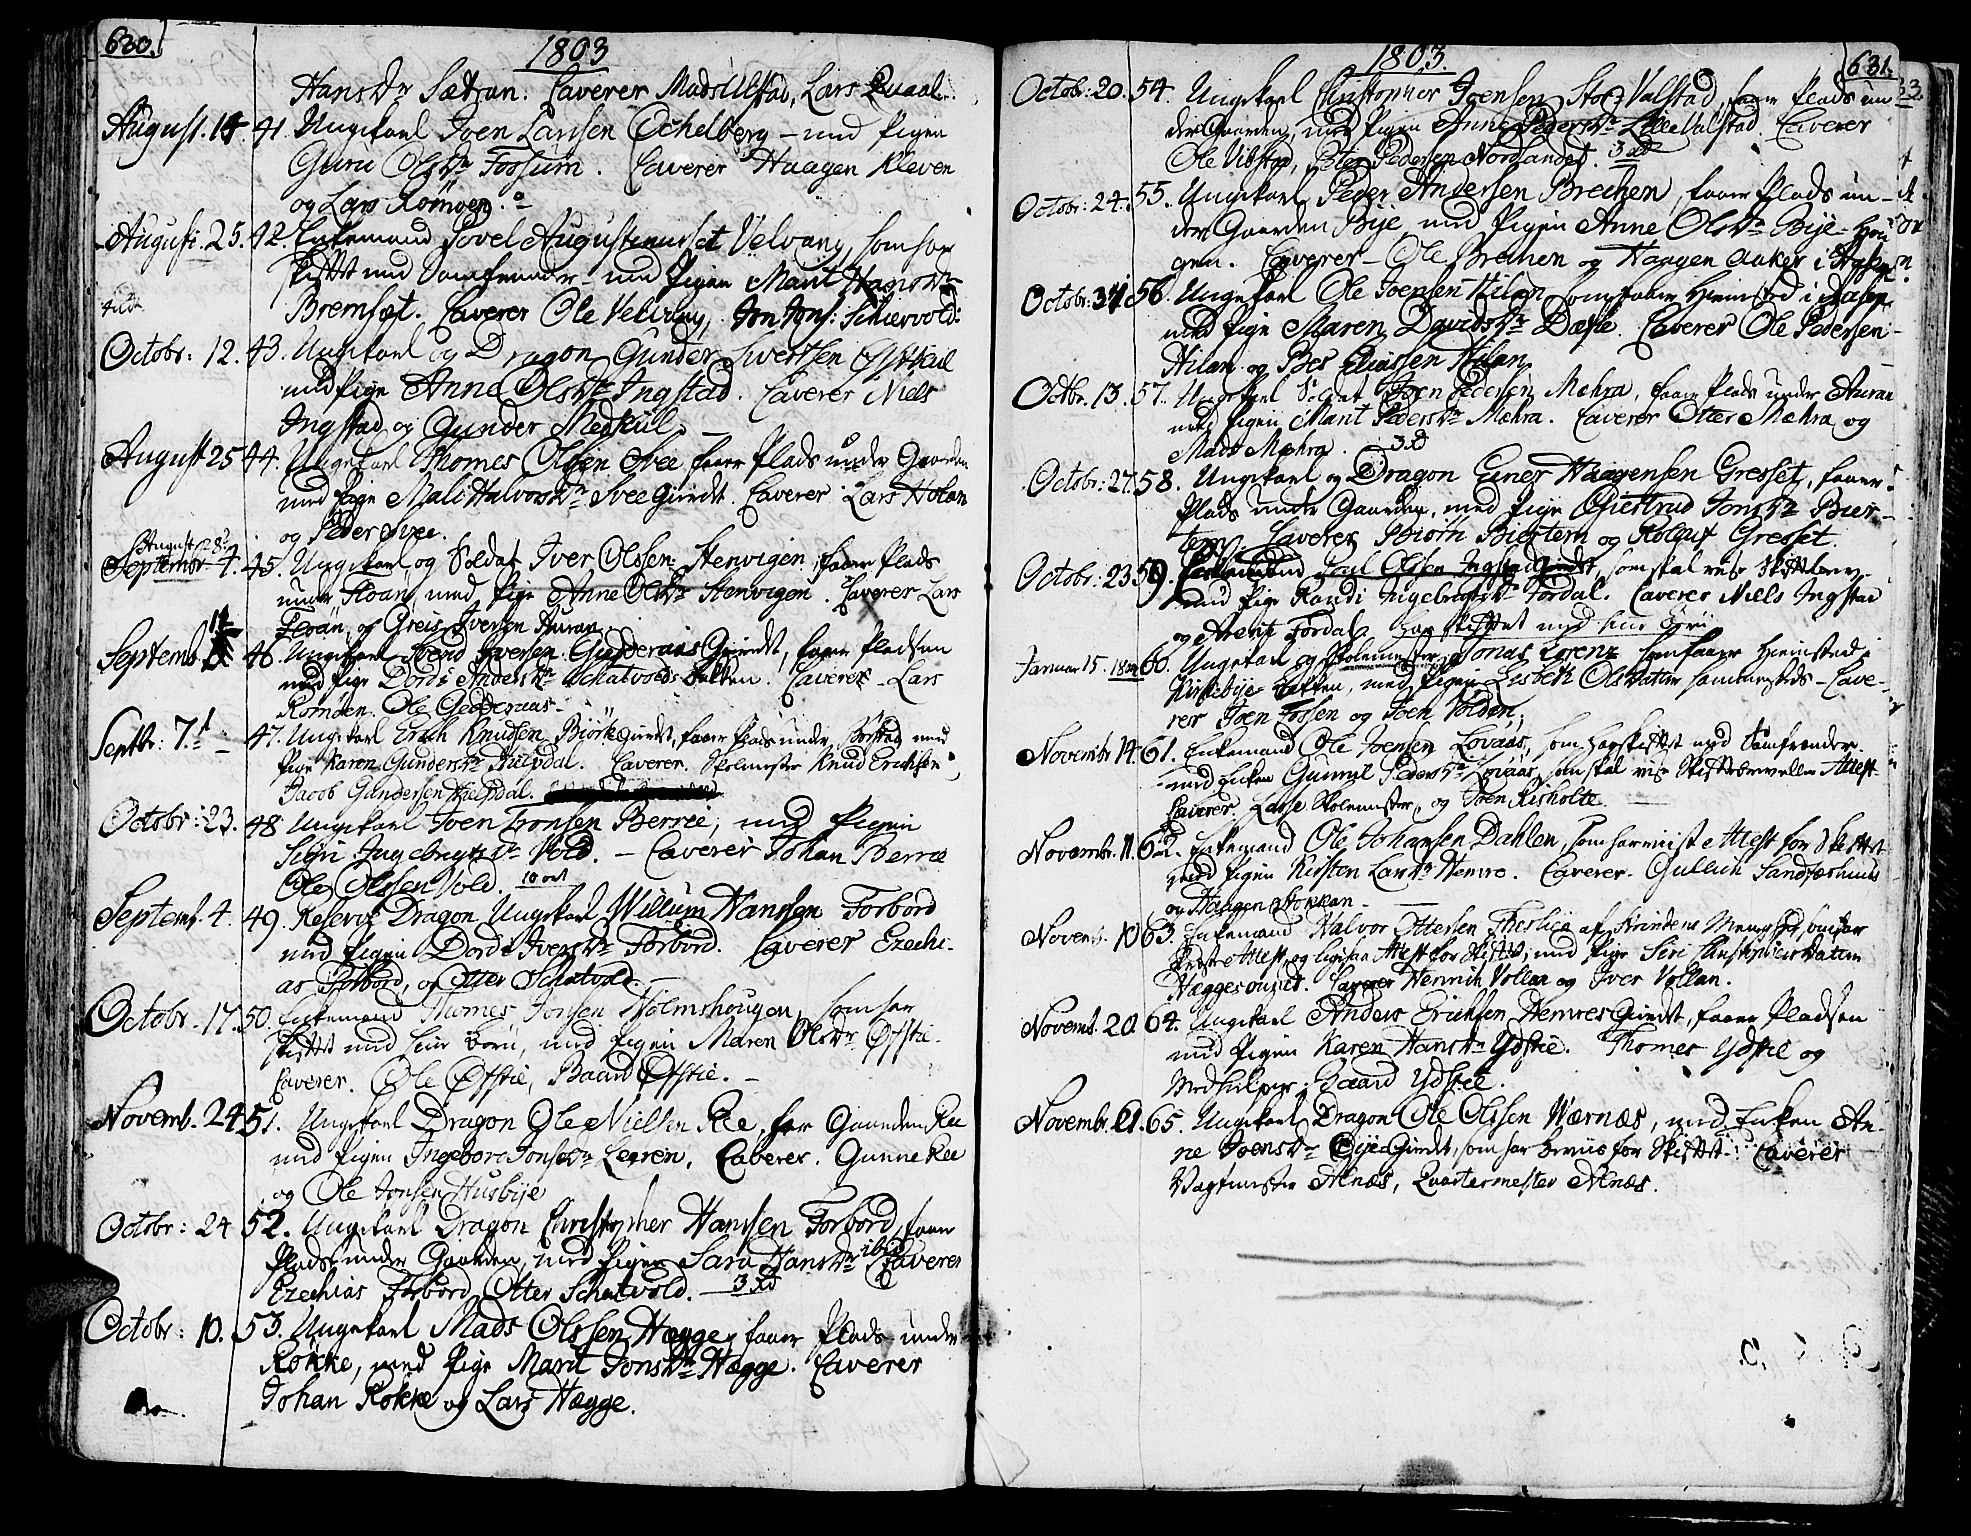 630.
1803
Hansdr Sætran. Caverer Mads Ulstad, Lars Quaal.
August. 14 41. Ungekarl Joen Larssen Ochelberg – med Pigen
Guru Olsdr Fossum. Caverer Haagen Kleven
og Lars Römoen.
August. 25. 42. Enkemand Povel Augustinusset Velvang, som har
skiftet med Samfrender – med Pigen Marit Hansdr
Bremset. Caverer Ole Velvang, Jon Jons: Schiervold:
Octobr: 12. 43. Ungekarl og Dragon Gunder Sivertsen
med Pige Anne Olsdr Ingstad. Caverer Niels
Ingstad og Gunder Medkiil.
August 25 44. Ungekarl Thomes Olssen Svee faaer Plads under Gaarden
med Pige Mali Halvorsdr Svee Giirdt. Caverer Lars Holan
og Peder Svee.
August 28
Septembr 4. 45. Ungekarl og Soldat Iver Olssen Stenvigen, faaer Plads
under Floan, med Pige Anne Olsdr Stenvigen. Caverer Lars
Floan og Greis Iversen Auran.
Septemb. 46. Ungekarl Iversen Giedderaas Giirdt, faaer Pladsen
med Pige Dordi Andersdr Schatvolds Bakken. Caverer – Lars
Romoen. Ole Giedderaas –
Septbr: 7. 47. Ungekarl Erich Knudsen Biörke Giirdt, faaer Plads under med
Pige Karen Gundersdr Hielpdal. Caverer. Skolemester Knud Erichsen
Jacob Gundersen Hielpdal.
Octobr: 23. 48 Ungekarl Joen Tronsen Berrie, med Pigen
Siri Ingebrigtsdr Vold. – Caverer Johan Berrie
Ole Olssen Vold.
Septemb. 4. 49. Reserve Dragon Ungekarl Willum Hanssen Forbord
med Pigen Dordi Iversdr Forbord. Caverer Ezechi-
as Forbord, og Otter Schatvold.
Octobr. 17. 50. Enkemand Thomes Jonsen Holmshougen, som har
skiftet med sine Börn, med Pigen Maren Olsdr Öfstie.
Caverer. Ole Öfstie, Baard Öfstie. –
Novemb. 24 51. Ungekarl Dragon Ole Nielsen Ree, faar Gaarden Ree
med Pigen Ingebor Jonsdr Leeren. Caverer. Gunne Ree
og Ole Jonsen Husbye
Octobr: 24 52. Ungekarl Dragon Christopher Hanssen Forbord, faaer
Plads under Gaarden, med Pigen Sara Hansdr ibid Caverer
Ezechias Forbord, Otter Schatvold. – 3 xd
Octobr: 10. 53. Ungekarl Mads Olssen Hægge, faaer Plads under
Rökke, med Pige Marit Jonsdr Hægge. Caverer
Johan Rökke og Lars Hægge.
1803.
631.
Octobr: 20. 54. Ungekarl Christopher Joensen Stor Valstad, faaer Plads un
der Gaarden, med Pigen Anne Pedersdr Lille Valstad. Caverer
Ole Vibstad, Peter Pedersen Nordlandet.
Octobr: 24. 55. Ungekarl Peder Andersen Brechen, faaer Plads un-
der Gaarden Bije, med Pigen Anne Olsdr Bije-Hou
gen. Caverer – Ole Brechen og Haagen Aaker i
Octobr. 31 56. Ungekarl Ole Joensen Hilan, som faaer Hiemsted i
med Pige Maren Davidsdr Dæhle. Caverer Ole Pedersen
Hilan og Eliassen Hilan
Octbr. 13. 57. Ungekarl Soldat Joen Pedersen Mæhra, faaer Plads under Auran
med Pigen Marit Pedersdr Mæhra. Caverer Otter Mæhra og
Mads Mæhra.
Octobr: 27. 58. Ungekarl og Dragon Einer Haagensen Gresset, faaer
Plads under Gaarden, med Pige Giertrud Jonsdr Bier-
tem. Caverer Biörn Biertem og Roluf Gresset.
Octobr: 23. 59. Enkemand Poul Olsen Ingstad Giirdt, som skal vise Skiftebrev
med Pige Randi Ingebrigtsdr Fordal. Caverer Niels Ingstad
og Arent Fordal. har skiftet med sine Börn
Januar 15. 1804 60. Ungekarl og Skolemester Jonas Lorenz som faaer Hiemsted i
Kirkebye Bakken, med Pigen Lisbeth Olsdatter sammesteds – Cave-
rer Joen Fossen og Joen Volden.
Novembr 14. 61. Enkemand Ole Joensen Lovaas, som har skiftet med Samfrender
med Enken Gunnil Pedersdr Lovaas, som skal vise Skiftebrev eller Attest
Caverer. Lasse Skolemester, og Joen Risholte.
Novembr. 11. 62. Enkemand Ole Johansen Dahlen, som har viist Attest for Skiftet
med Pigen Kirsten Larsdr Hemre. Caverer. Gullich Sandfærhuus
og Haagen Stokkan.
Novemb. 10 63. Enkemand Halvor Ottesen Theslie af Strindens Menighed,
Præste Attest og ligesaa Attest for Skiftet, med Pige Siri Christophersdatter
Hæggesvuset. Caverer Henrich Vollan og Iver Vollan.
Novemb. 20 64. Ungekarl Anders Erichsen Hemres Giirdt, faaer Pladsen
med Pigen Karen Hansdr Ydstie. Thomes Ydstie og
Medhielper Baard Ydstie.
Novembr. 21. 65. Ungekarl Dragon Ole Olssen Værnæs, med Enken An-
ne Joensdr Öije Giirdt, som har beviis for Skiftet. Caverer
Vagtmester Alnæs, Quartermester Alnæs.